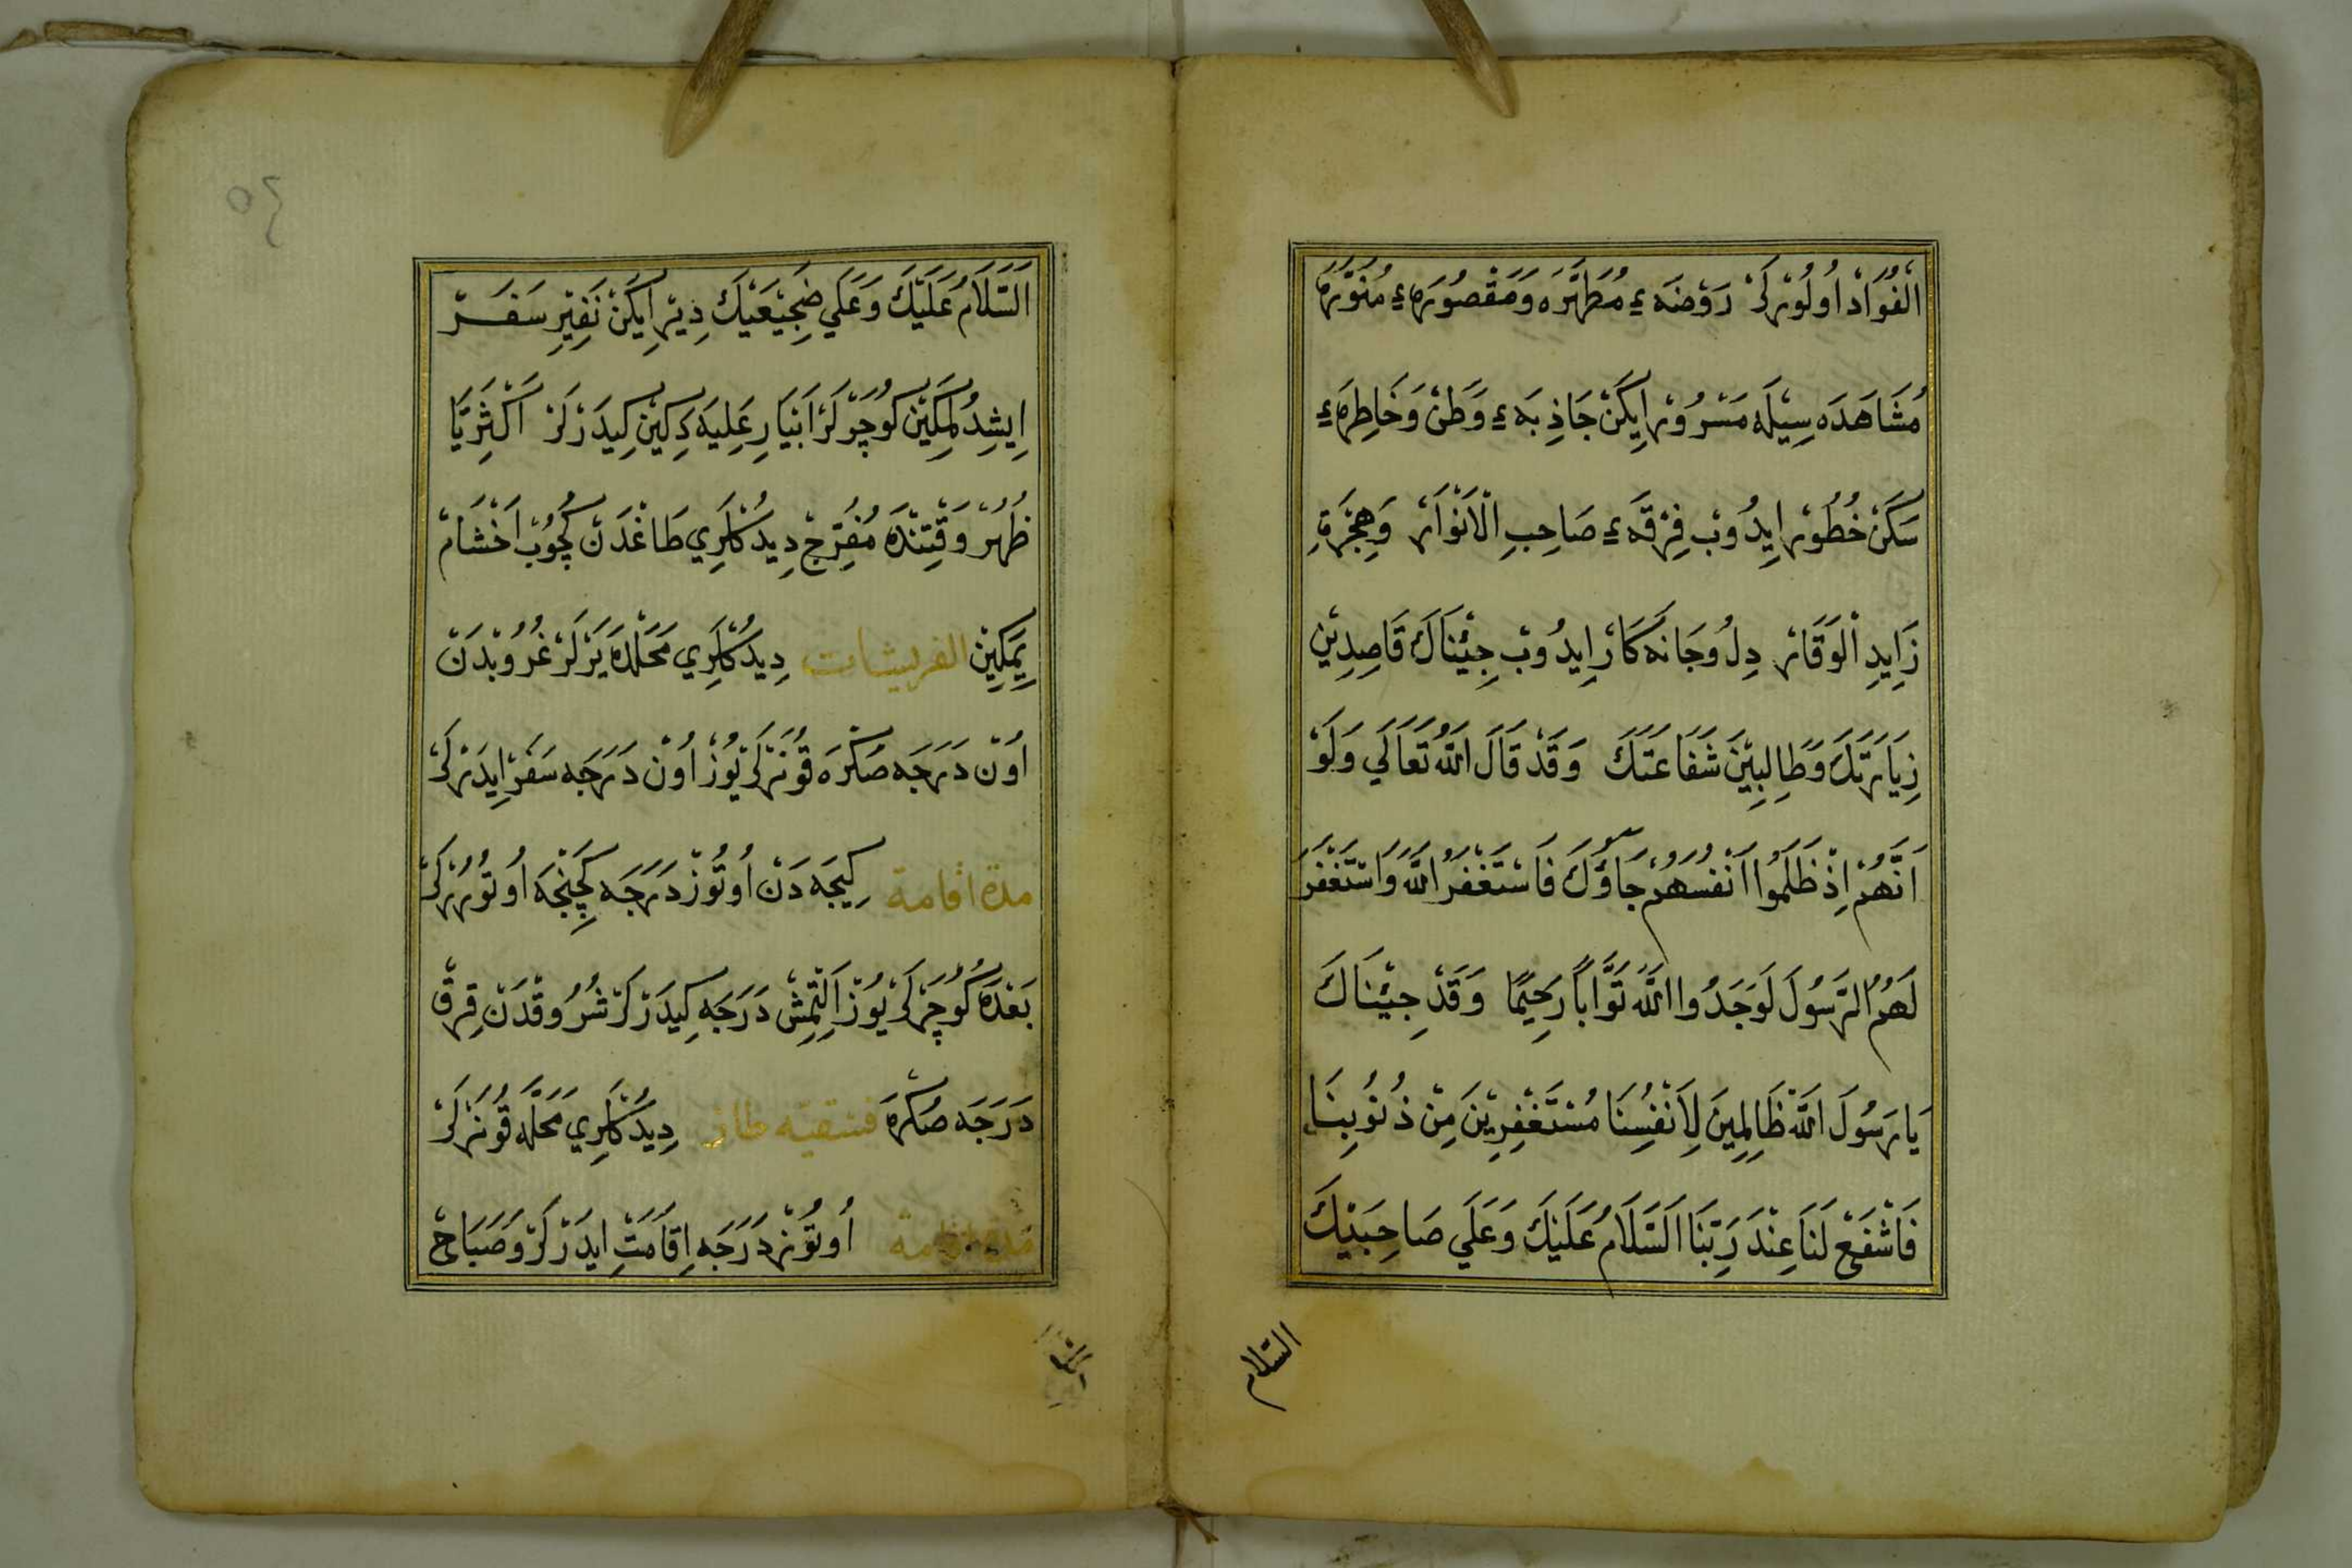 الْفُوَادْ اُولُورْلَرْ رَوْضَهٔ مُطَهَّرَه وَمَقْصُورَهٔ مُنَوَّرَه
مُشَاهَدَه سِيْلَه مَسْرُورْ اِيكَنْ جَاذِبَهٔ وَطَنْ وَخَاطِرَهٔ
سَكَنْ خُطُورْ اِيدُوبْ فِرْقَهٔ صَاحِبِ الْاَنْوَارْ وَهِجْرَةِ
زَايِدِ الْوَقَارْ دِلُ وَجَانَه كَارْ اِيدُوبْ جِئْنَاكَ قَاصِدِيْنِ
زِيَارَتَكَ وَطَالِبِيْنَ شَفَاعَتَكَ وَقَدْ قَالَ اللَّهُ تَعَالَي وَلَوْ
اَنَّهُمْ اِذْ ظَلَمُوا اَنْفُسَهُمْ جَاؤُكَ فَاسْتَغْفَرُ اللَّهَ وَاسْتَغْفَرَ
لَهُمُ الرَّسُولَ لَوَجَدُوا اللَّهَ تَوَّاباً رَحِيْمًا وَقَدْ جِئْنَاكَ
يَا رَسُولَ اللَّهْ ظَالِمِينَ لِاَنْفُسِنَا مُسْتَغْفِرِيْنَ مِنْ ذُنُوبِنَا
فَاشْفَعْ لَنَا عِنْدَ رَبِّنَا اَلسَّلَامُ عَلَيْكَ وَعَلَي صَاحِبَيْكَ
السلام
٥٤
اَلسَّلَامُ عَلَيْكَ وَعَلَي ضَجِيْعَيْكَ دِيرْ اِيكَنْ نَفِيْرِ سَفَرْ
اِيشِدُلِمَكِيْنْ كُوچَرْلَرْ اَبْيَارِ عَلِيَه دَكِينْ كِيدَرْلَرْ اَكْثَرِيَّا
ظُهُرْ وَقْتِنْدَه مُفَرِّحْ دِيدُكْلَرِي طَاغْدَنْ كَچُوبْ اَخْشَامْ
يِمَكِيْنْ الفريشات دِيدُكْلَرِي مَحَلْدَه يَرْلَرْ غُرُوبْدَنْ
اُونْ دَرَجَه صُكْرَه قُونَرْلَرْ يُوزْ اُونْ دَرَجَه سَفَرْ اِيدَرْلَرْ
مدة اقامة كِيجَه دَنْ اُوتُوزْ دَرَجَه كَچِنْجَه اُوتُورُرْلَرْ
بَعْدَه كُوچَرْلَرْ يُوزْ اَلْتِمِشْ دَرَجَه كِيدَرْلَرْ شُرُوقْدَنْ قِرْقْ
دَرَجَه صُكْرَه فسقيه طاز دِيدُكْلَرِي مَحَلَّه قُونَرْلَرْ
مدة اقامة اُوتُوزْ دَرَجَه اِقَامَتِ اِيدَرْلَرْ وَصَبَاحْ